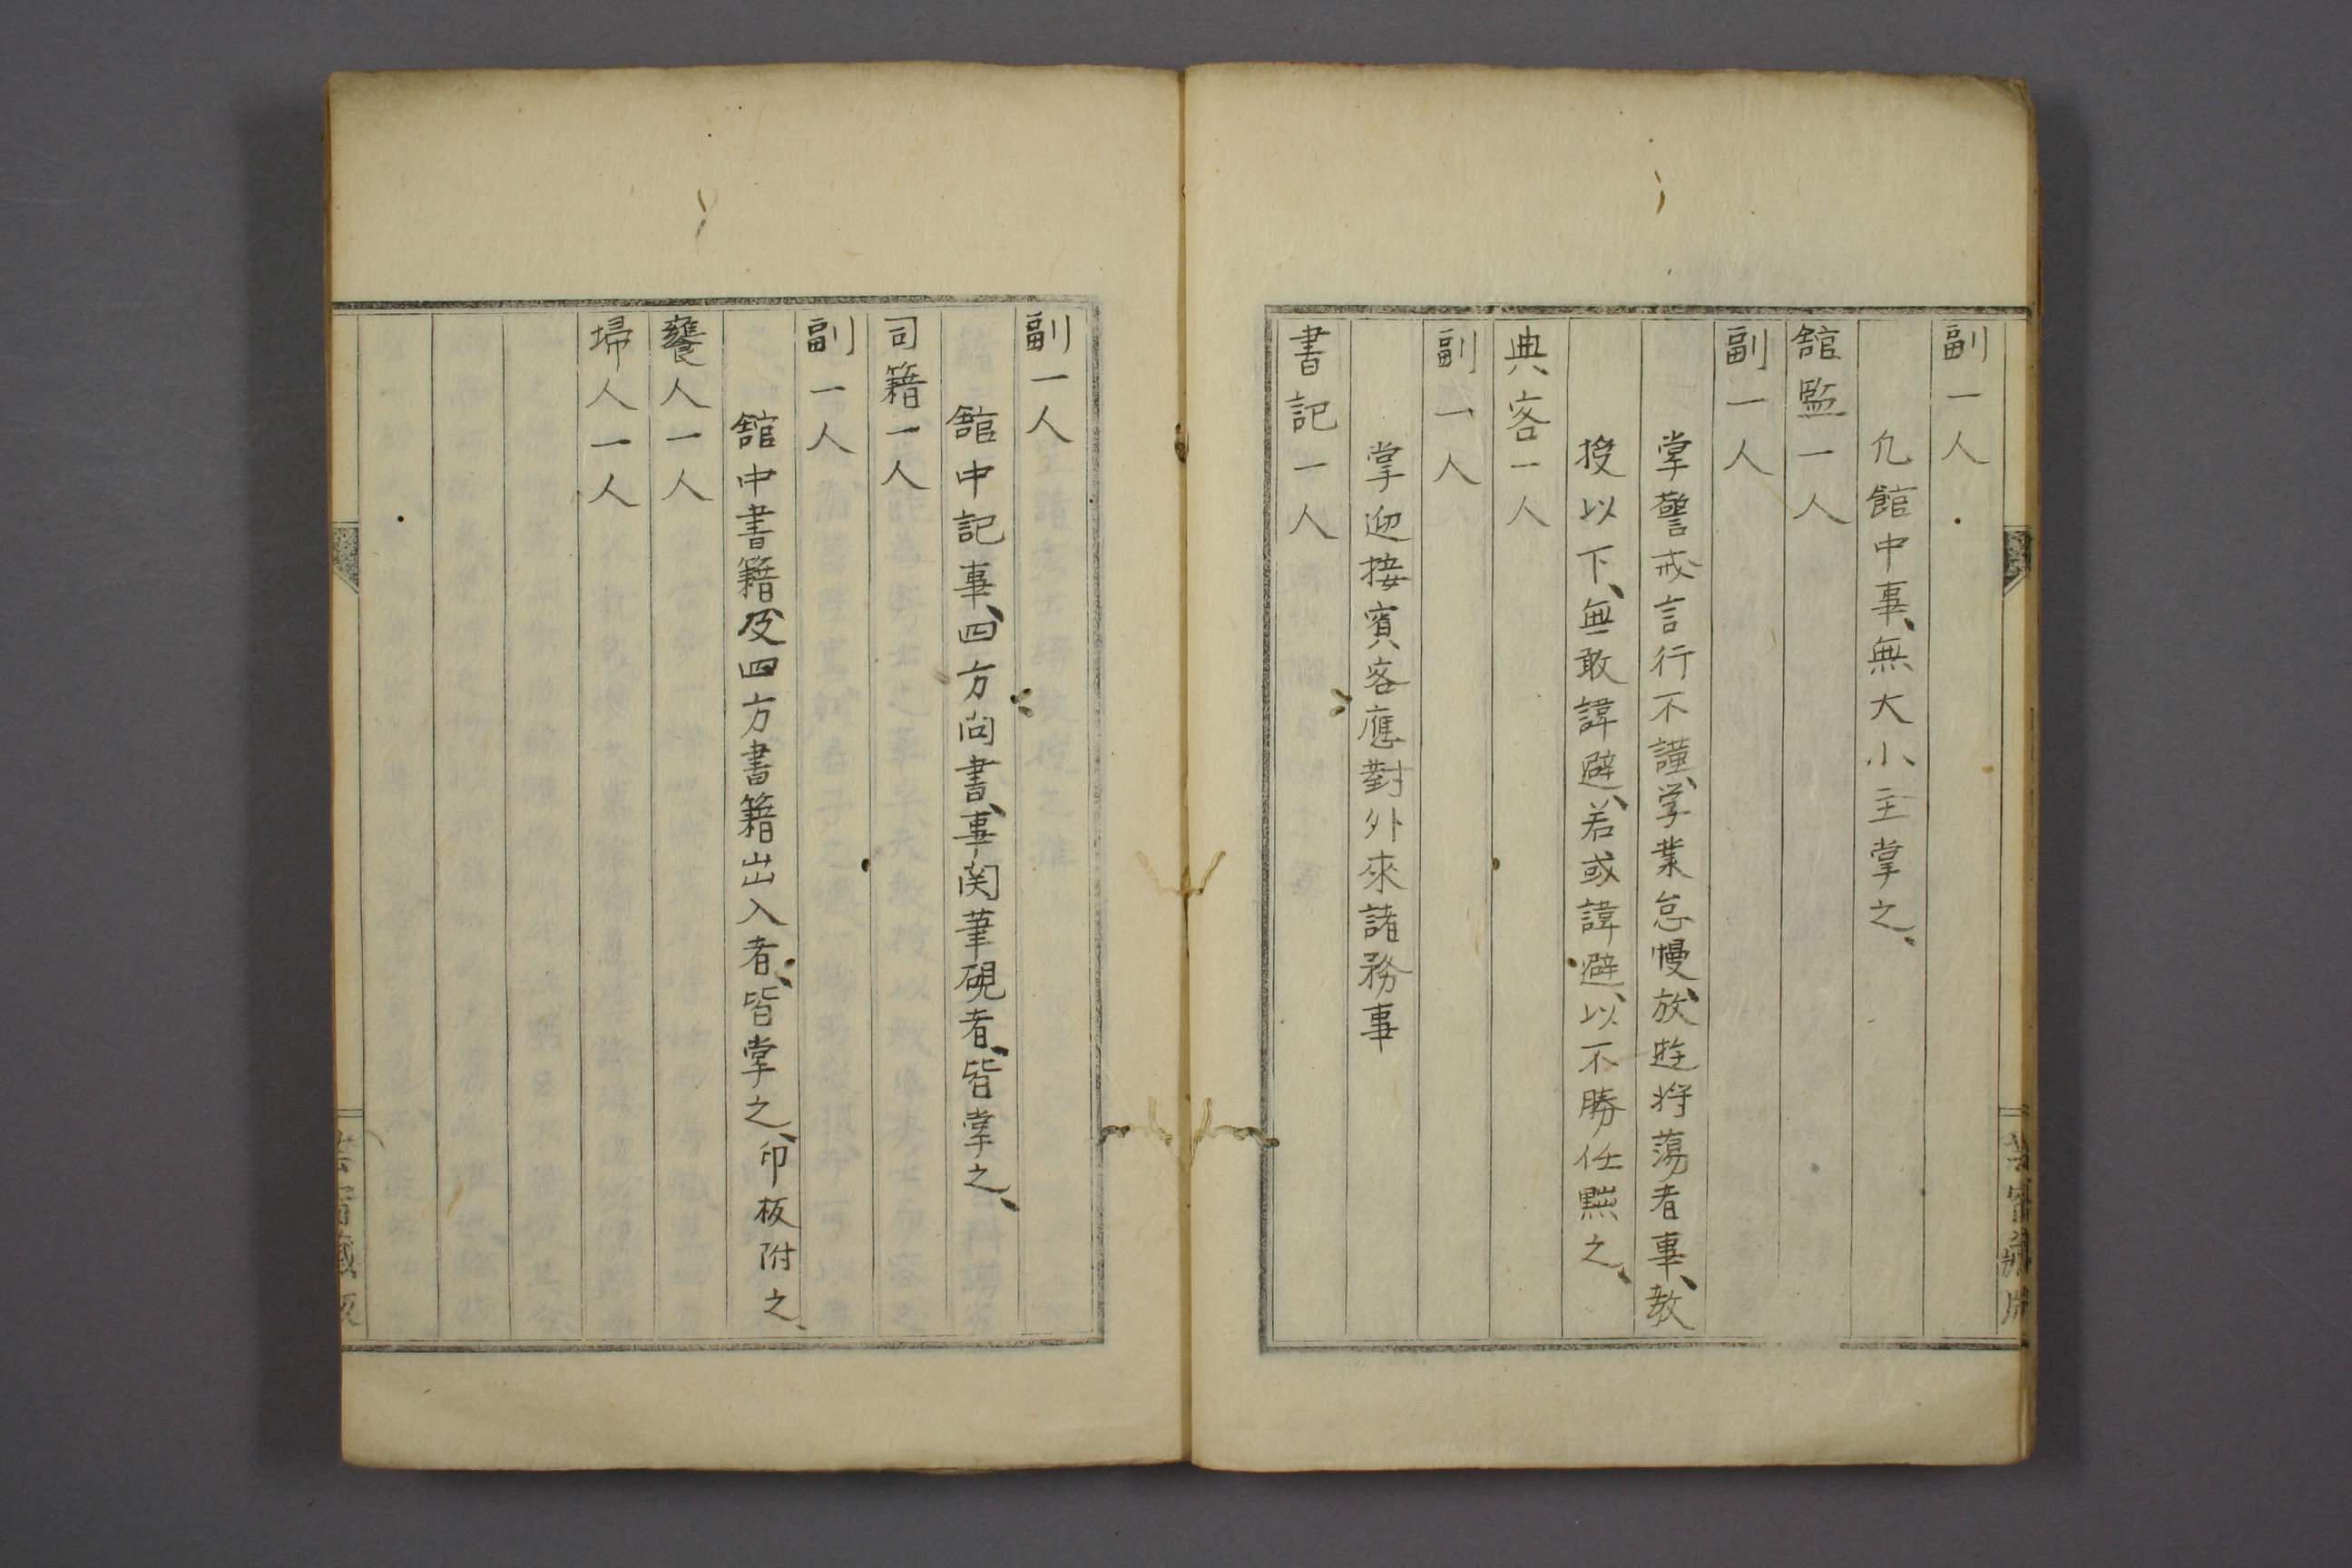 副一人
凢館中事、無大小主掌之、
舘監一人
副一人
掌警戒言行不謹、学業怠慢、放遊将蕩者事、教
授以下、無敢諱避、若或諱避、以不勝任黜之、
典客一人
副一人
掌迎接賓客應對外來諸務事
書記一人
副一人
舘中記事、四方尚書、事関筆硯者、皆掌之、
司籍一人
副一人
舘中書籍及四方書籍出入者、皆掌之、印板附之、
饔人一人
掃人一人